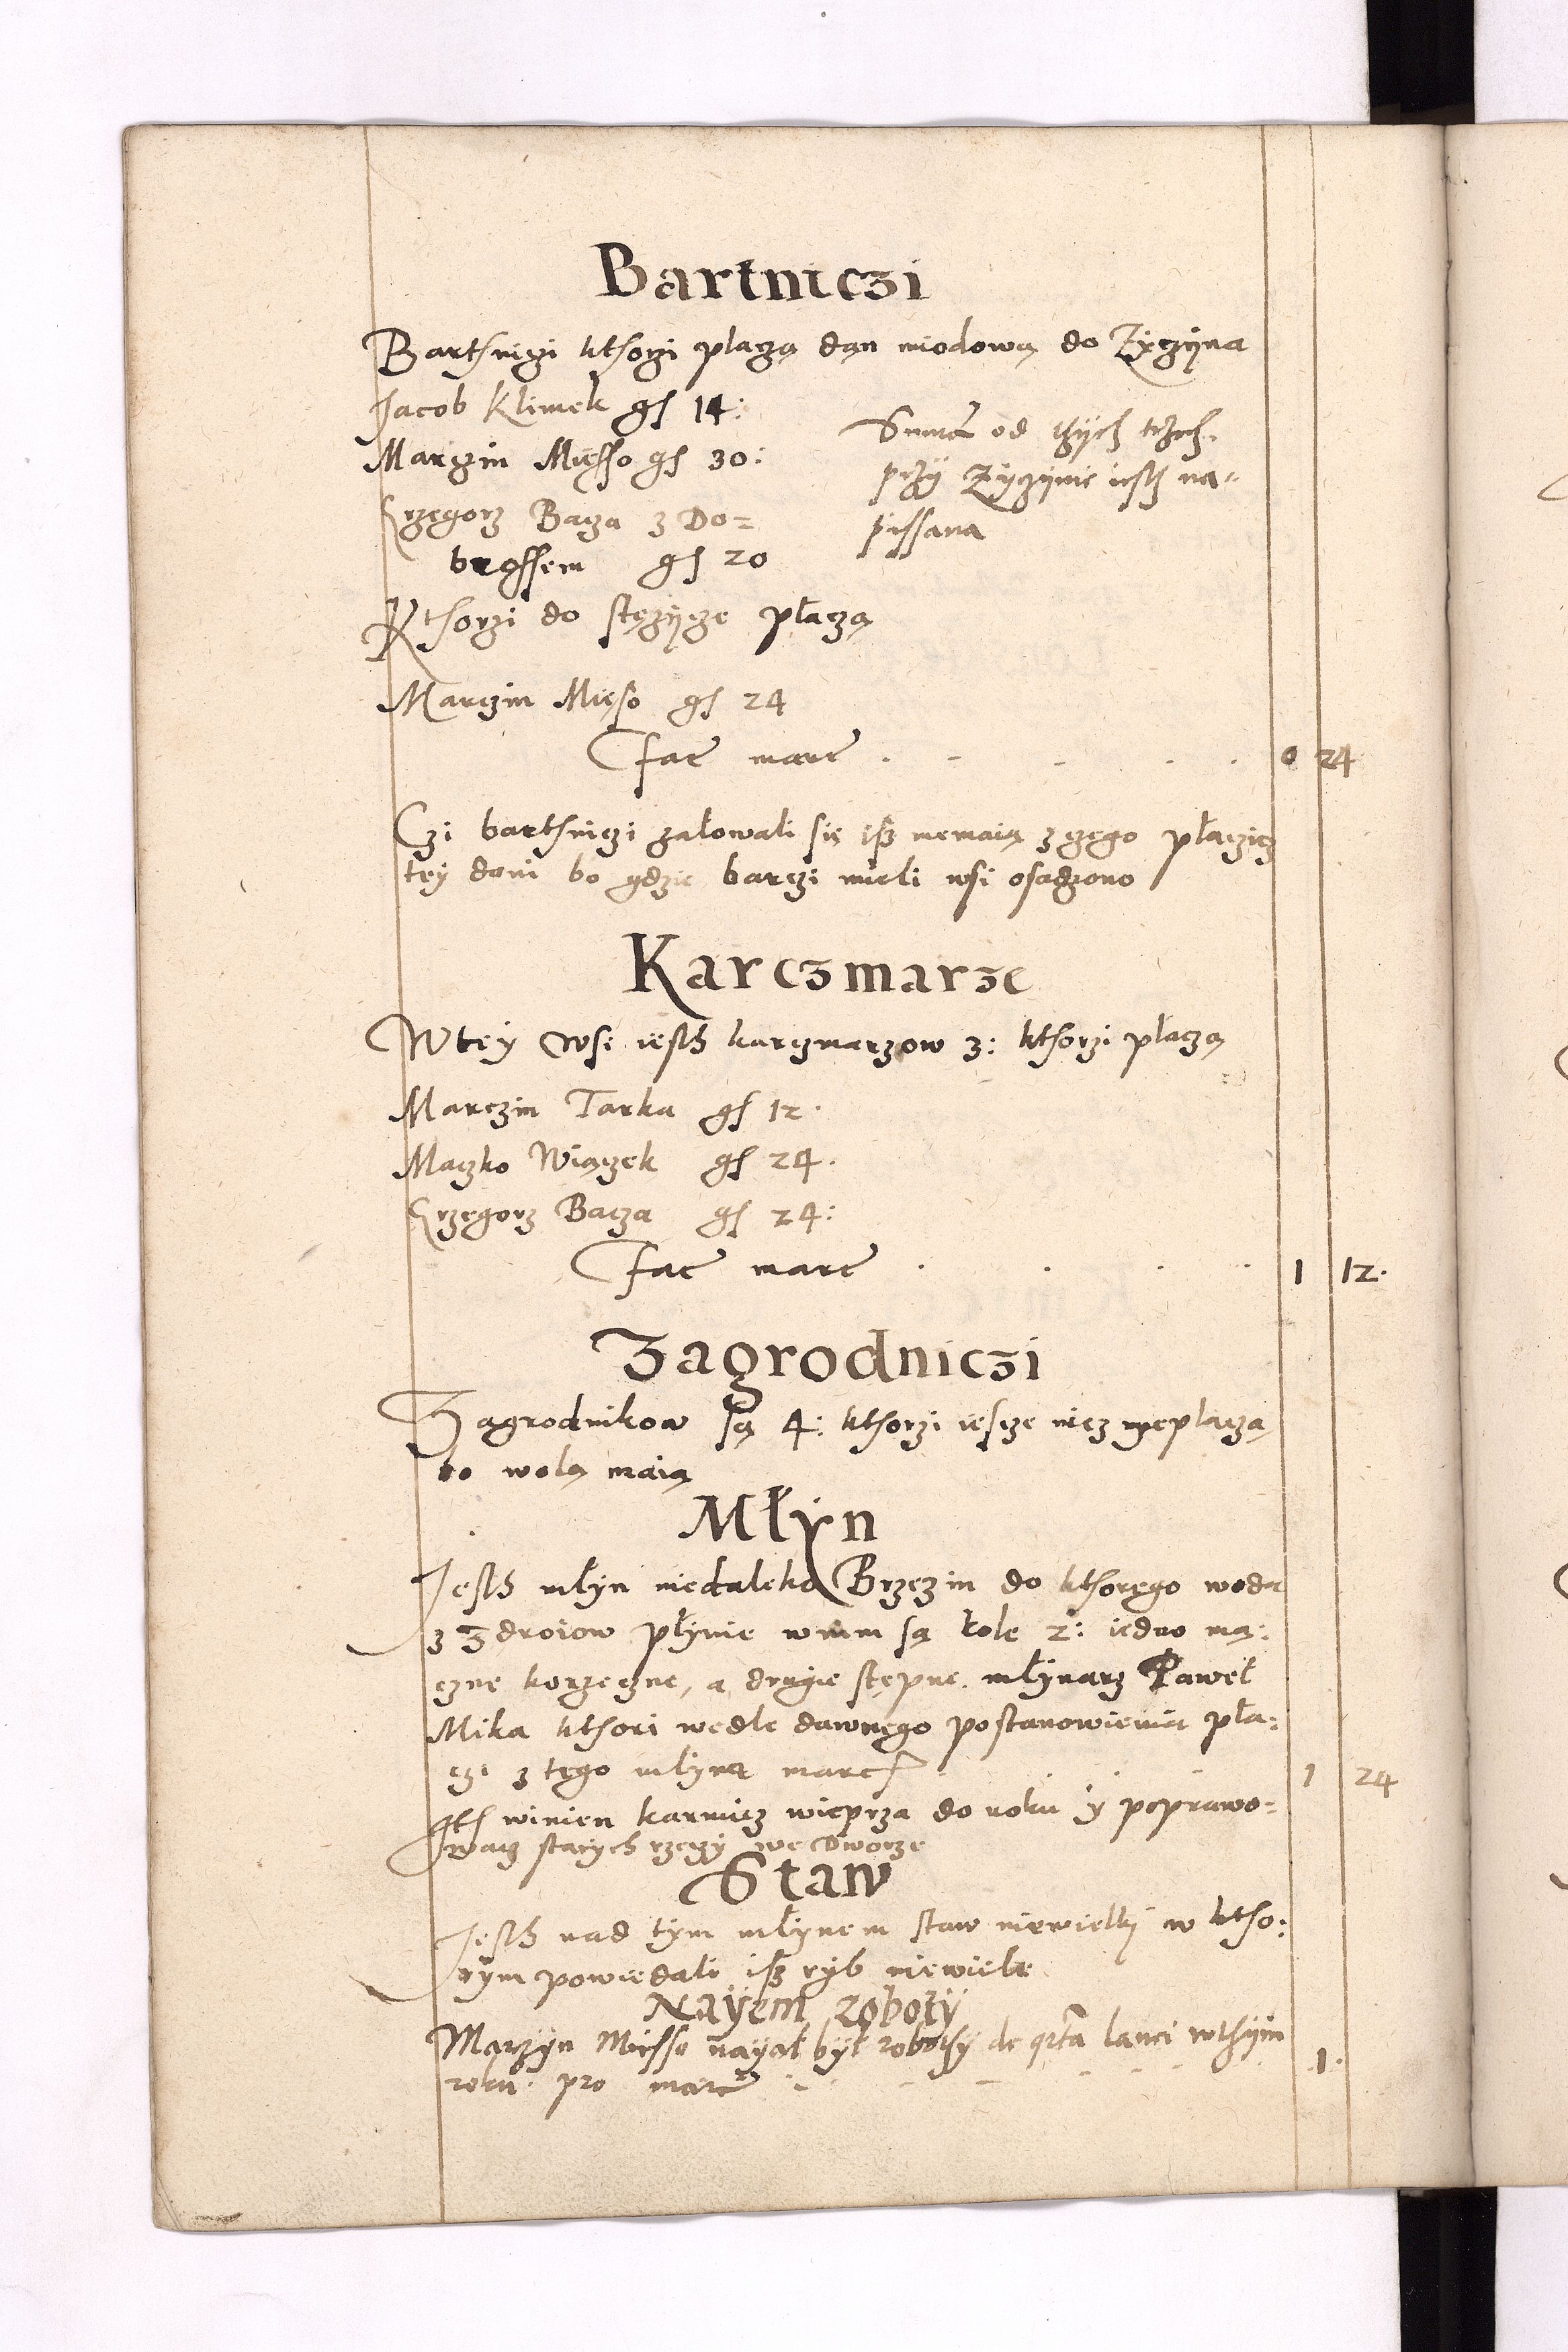 Bartniczi
Barthniczi kthorzi placzą dan miodową do Zyczyna
Jacob Klimek gs 14:
Marczin Mięsso gs 30:
Grzegorz Bacza z Do=
brossem gs 20
Suma od thych trzech
przy Zyczynie iesth na=
pissana
Kthorzi do stęzycze płaczą
Marczin Mięso gs 24
Fac marc . . . . . 0 24
Czi barthniczi załowali się isz niemaią z czego płaczicz
tey dani bo gdzie barczi mieli wsi osadzono
Karczmarze
W tey wsi iesth karczmarzow 3: kthorzi placzą
Marczin Tarka gs 12.
Maczko Wiączek gs 24.
Grzegorz Bacza gs 24:
Fac marc . . . . 1 12.
Zagrodniczi
Zagrodnikow są 4: kthorzi iescze nicz nieplaczą
bo wolą maią
Młyn
Iesth młyn niedaleko Brzezin do kthorego woda
z Zdroiow płynie w nim są kole 2: iedno mą=
czne korzeczne, a drugie stępne. młynarz Paweł
Mika kthori wedle dawnego postanowienia pła=
czi z tego młyna marc . . . 1 24
Ith winien karmicz wieprza do roku y poprawo=
wacz starych rzeczy we Dworze
Staw
Iesth nad tym młynem staw niewielki w ktho=
rym powiedali isz ryb niewiele
Nayem roboty
Marczyn Miesso nayął był robothy de qrta lanei w thym
roku pro marc . . . . . 1.